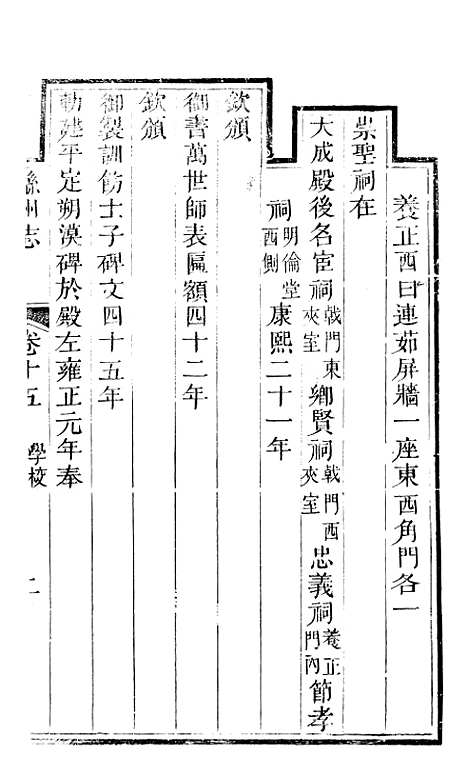 養正西曰連茹屏牆一座東西角門各一
崇聖祠在
大成殿後名宦祠戟門東夾室鄉賢祠戟門西夾室忠義祠養正門內節孝
祠明倫堂西側康熙二十一年
欽頒
御書萬世師表匾額四十二年
欽頒
御製訓飭士子碑文四十五年
勅建平定朔漠碑於殿左雍正元年奉
州志
卷十五
學校
二